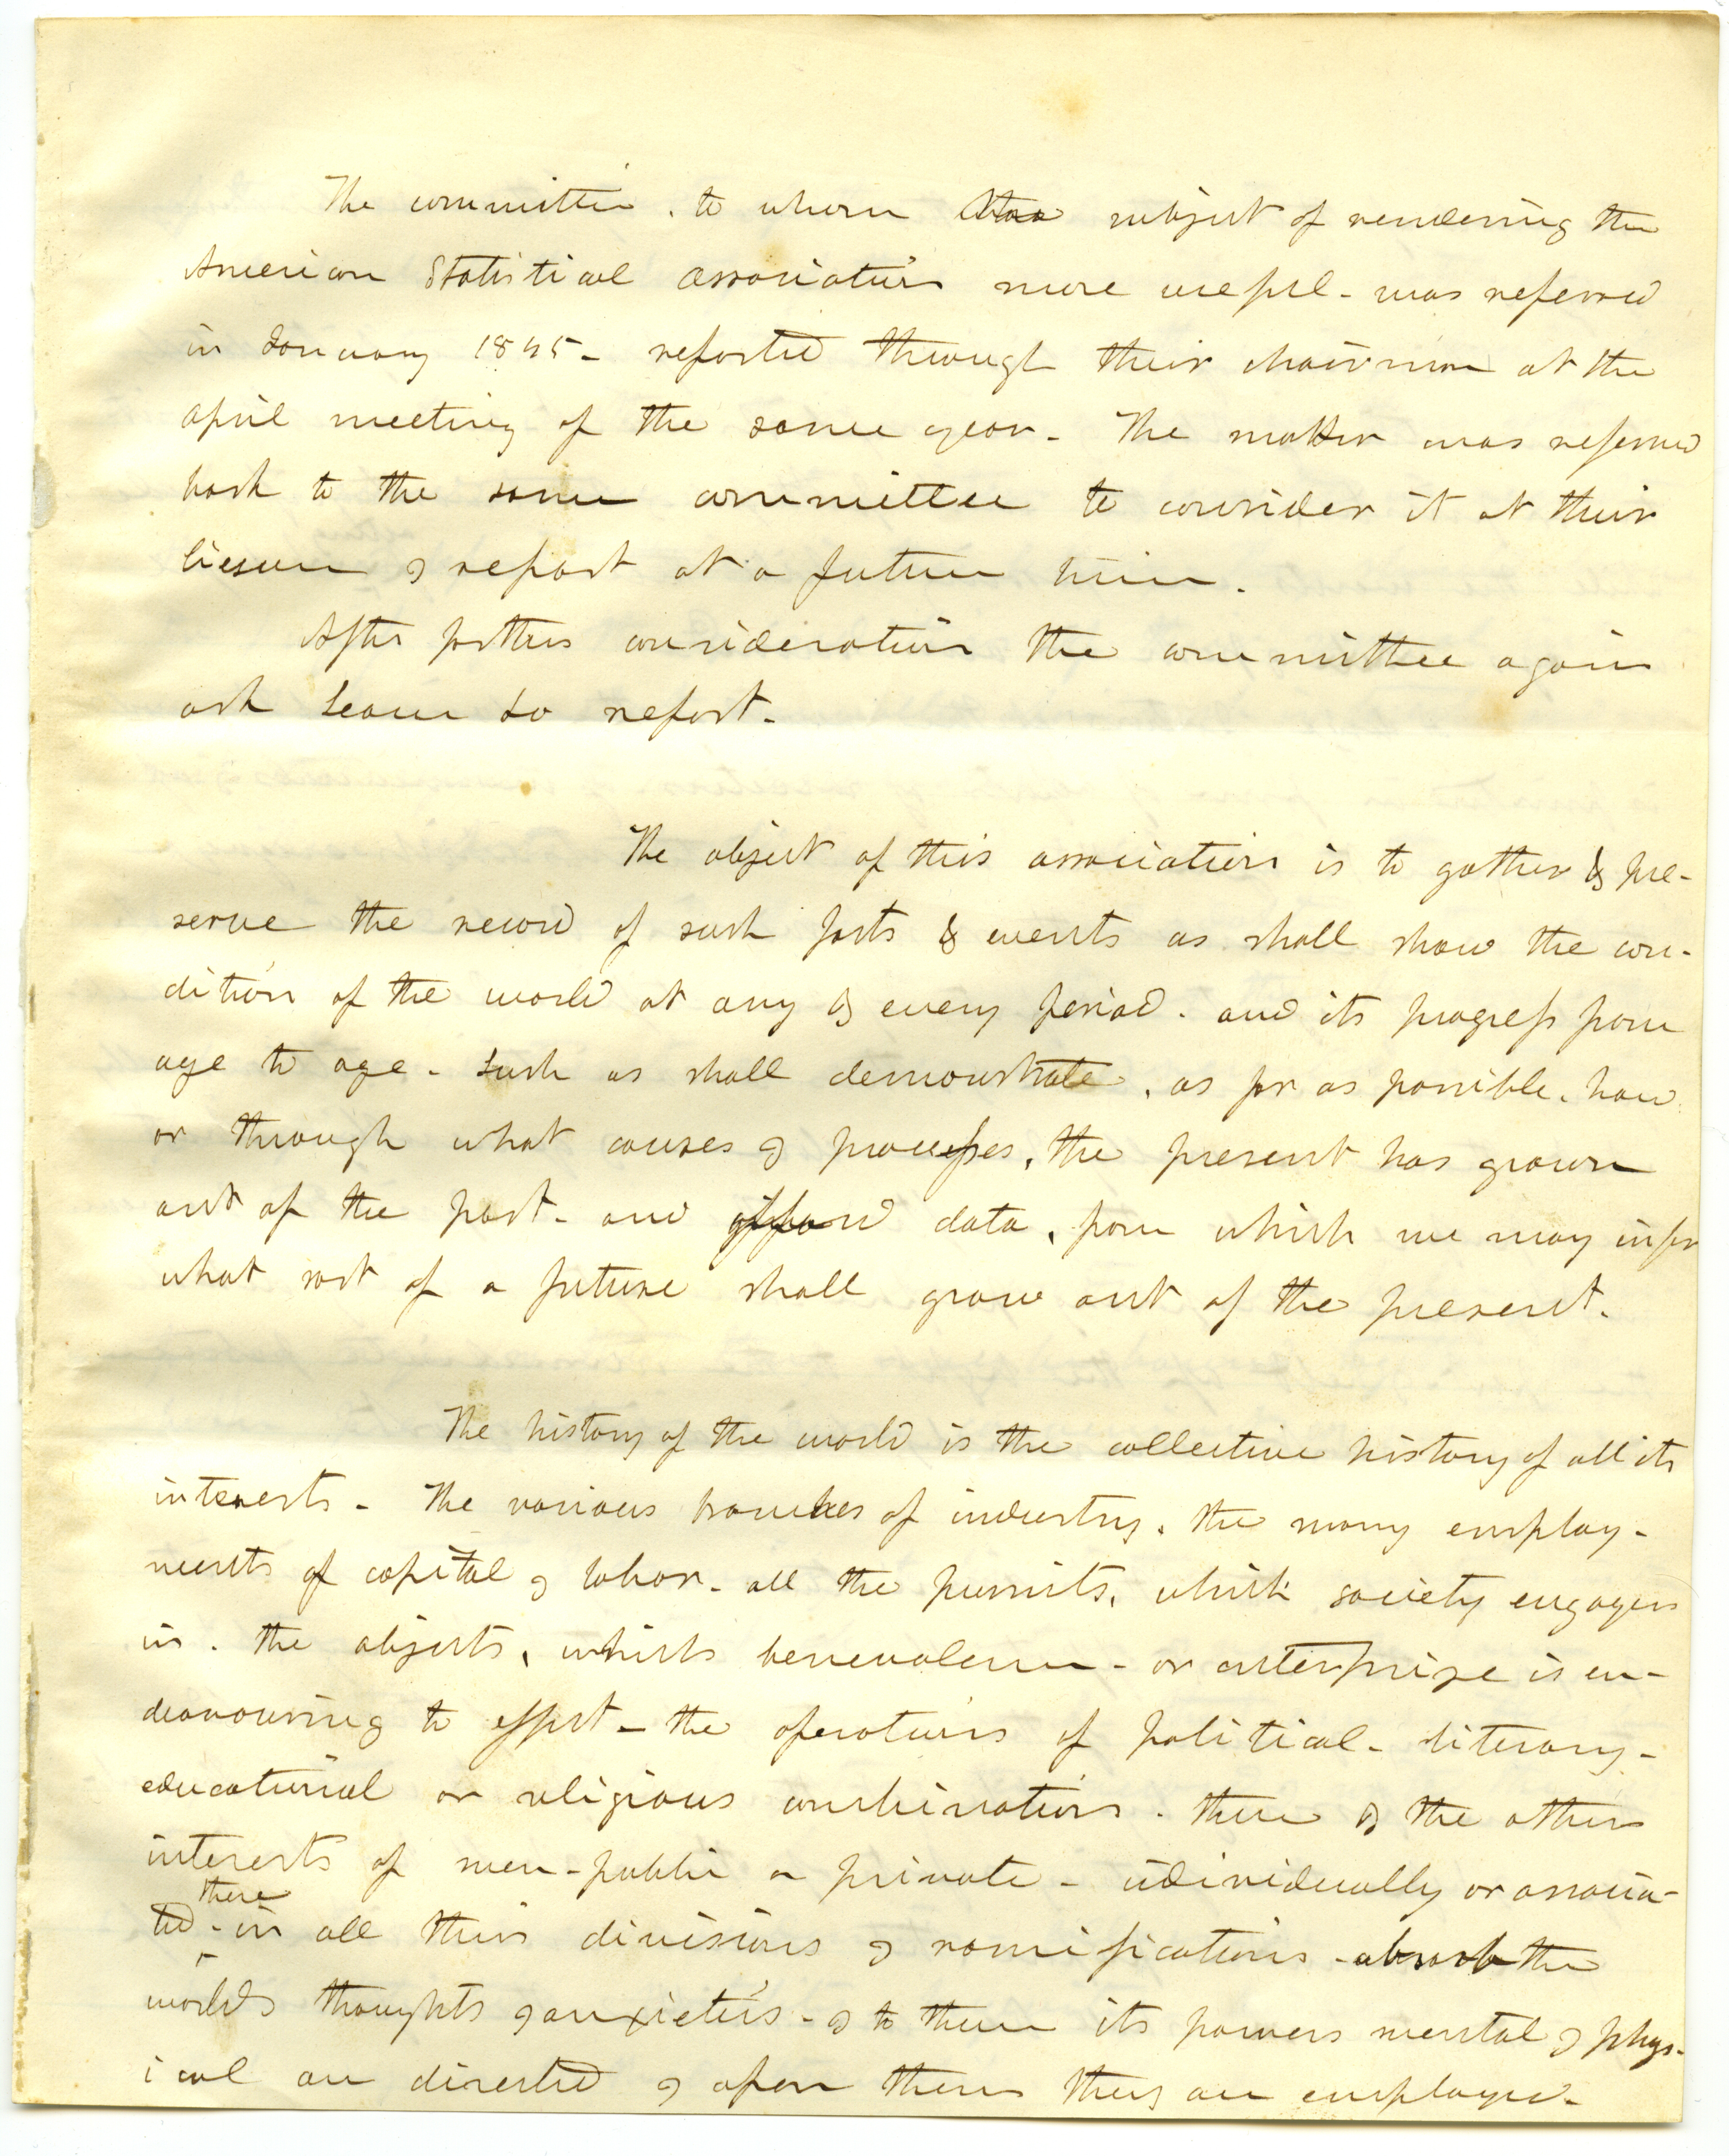 The committee, to whom the subject of rendering the
American Statistical Association more useful - was referred
in January 1845 - reported through their chairman at the
April meeting of the same year - The matter was referred
back to the same committee to consider it at their
liesure & report at a future time.
After further consideration the committee again
ask leave to report -
The object of this association is to gather & pre-
serve the record of such facts & events as shall show the con-
dition of the world at any & every period - and its progress from
age to age - such as shall demonstrate, as far as possible, how
or through what causes & processes, the present has grown
out of the past - and afford data, from which we may infer
what sort of a future shall grow out of the present.
The history of the world is the collective history of all its
interests - The various branches of industry, the many employ-
ments of capital & labor - all the pursuits, which society engages
in. the objects, which benevolence - or enterprize is en-
deavouring to effect - the operations of political - literary -
educational or religious combinations - these & the other
interests of men - public or private - individually or associa-
ted - these in all their divisions & ramifications - absorb the
worlds thoughts & anxieties - & to them its powers mental & phys-
ical are directed & upon them they are employed -